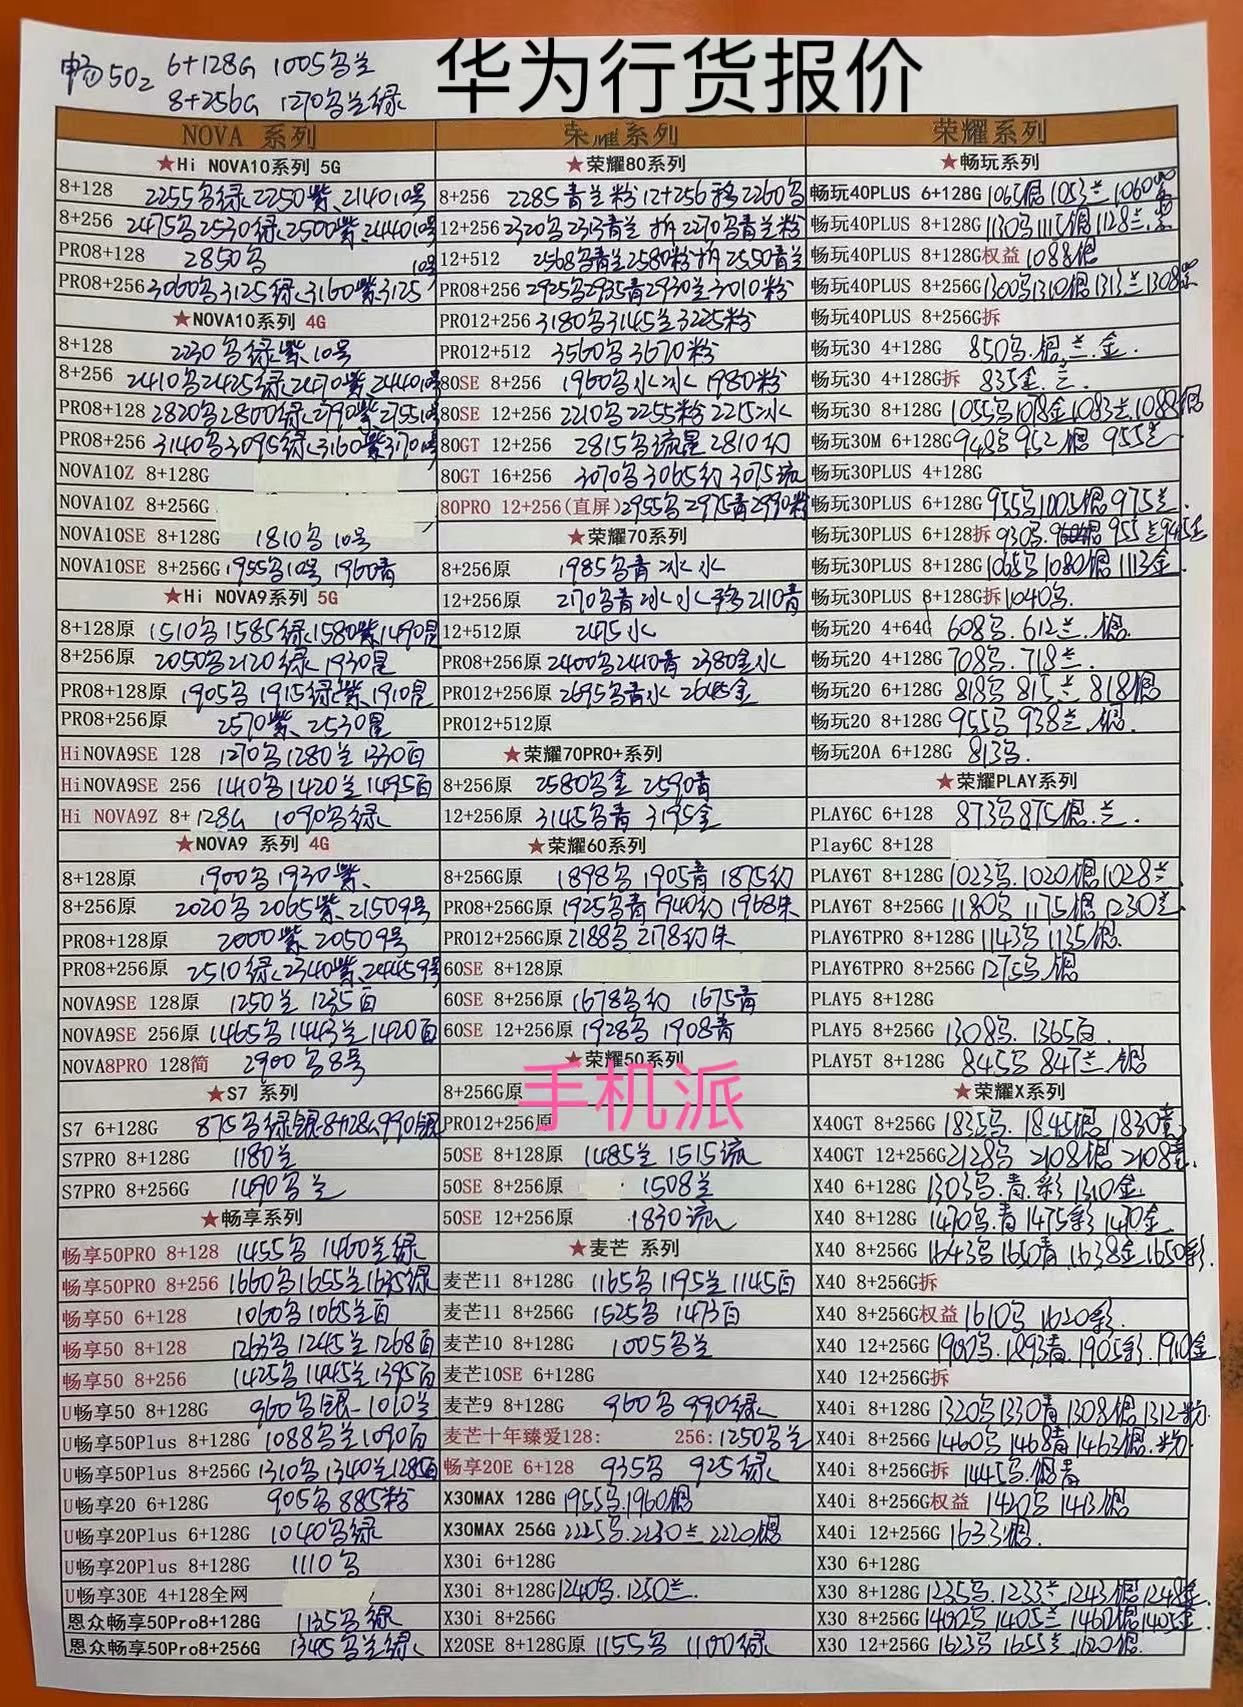 华为行货报价
畅50z 6+128G 1005乌兰
8+256G 1270乌兰绿
NOVA 系列
★Hi NOVA10系列 5G
8+128 2255乌绿 2250紫 2140 10号
8+256 2475乌 2530绿 2500紫 2440 10号
PRO8+128 2850乌
PRO8+256 3060乌 3125绿 3160紫 3125 10号
★NOVA10系列 4G
8+128 2230乌绿紫 10号
8+256 2410乌 2425绿 2470紫 2440 10号
PRO8+128 2820乌 2800绿 2790紫 2755 10号
PRO8+256 3140乌 3095绿 3160紫 3170 10号
NOVA10Z 8+128G
NOVA10Z 8+256G
NOVA10SE 8+128G 1810乌 10号
NOVA10SE 8+256G 1955乌10号 1960青
★Hi NOVA9系列 5G
8+128原 1510乌 1585绿 1580紫 1490星
8+256原 2050乌 2120绿 1930星
PRO8+128原 1905乌 1915绿紫 1910星
PRO8+256原 2570紫 2530星
HiNOVA9SE 128 1270乌 1280兰 1330白
HiNOVA9SE 256 1410乌 1420兰 1495白
Hi NOVA9Z 8+128G 1090乌绿
★NOVA9 系列 4G
8+128原 1900乌 1930紫
8+256原 2020乌 2065紫 2150 9号
PRO8+128原 2000紫 2050 9号
PRO8+256原 2510绿 2340紫 2445 9号
NOVA9SE 128原 1250兰 1235白
NOVA9SE 256原 1465乌 1443兰 1420白
NOVA8PRO 128简 2900乌8号
★S7 系列
S7 6+128G 875乌绿银 8+128G 990银
S7PRO 8+128G 1180兰
S7PRO 8+256G 1490乌兰
★畅享系列
畅享50PRO 8+128 1455乌 1460兰绿
畅享50PRO 8+256 1660乌 1655兰 1635绿
畅享50 6+128 1060乌 1065兰白
畅享50 8+128 1263乌 1245兰 1268白
畅享50 8+256 1425乌 1445兰 1395白
U畅享50 8+128G 960乌银 1010兰
U畅享50Plus 8+128G 1088乌兰 1090白
U畅享50Plus 8+256G 1310乌 1340兰 1285白
U畅享20 6+128G 905乌 885粉
U畅享20Plus 6+128G 1040乌绿
U畅享20Plus 8+128G 1110乌
U畅享30E 4+128全网
恩众畅享50Pro8+128G 1135乌绿
恩众畅享50Pro8+256G 1345乌兰绿
荣耀系列
★荣耀80系列
8+256 2285青兰粉 12+256移2260乌
12+256 2320乌 2313青兰 拆2270乌青兰粉
12+512 2568乌青兰 2580粉 拆2550青兰
PRO8+256 2925乌 2935青 2930兰 3010粉
PRO12+256 3180乌 3145兰 3225粉
PRO12+512 3560乌 3670粉
80SE 8+256 1960乌水冰 1980粉
80SE 12+256 2210乌 2255粉 2215冰
80GT 12+256 2815乌流星 2810幻
80GT 16+256 3070乌 3065幻 3075流
80PRO 12+256(直屏) 2955乌 2975青 2990粉
★荣耀70系列
8+256原 1985乌青 冰水
12+256原 2170乌青冰水 移2110青
12+512原 2475水
PRO8+256原 2400乌 2410青 2380金水
PRO12+256原 2695乌青水 2685金
PRO12+512原
★荣耀70PRO+系列
8+256原 2580乌金 2590青
12+256原 3145乌青 3195金
★荣耀60系列
8+256G原 1898乌 1905青 1875幻
PRO8+256G原 1925乌青 1940幻 1968朱
PRO12+256G原 2188乌 2178幻朱
60SE 8+128原
60SE 8+256原 1678乌幻 1675青
60SE 12+256原 1928乌 1908青
★荣耀50系列
手机派
8+256G原
PRO12+256原
50SE 8+128原 1485兰 1515流
50SE 8+256原 1508兰
50SE 12+256原 1830流
★麦芒 系列
麦芒11 8+128G 1165乌 1195兰 1145白
麦芒11 8+256G 1525乌 1473白
麦芒10 8+128G 1005乌兰
麦芒10SE 6+128G
麦芒9 8+128G 960乌 990绿
麦芒十年臻爱128: 256: 1250乌兰
畅享20E 6+128 935乌 925绿
X30MAX 128G 1955乌 1960银
X30MAX 256G 2225乌 2230兰 2220银
X30i 6+128G
X30i 8+128G 1240乌 1250兰
X30i 8+256G
X20SE 8+128G原 1155乌 1100绿
荣耀系列
★畅玩系列
畅玩40PLUS 6+128G 1065银 1053兰 1060
畅玩40PLUS 8+128G 1130乌 1115银 1128兰.紫
畅玩40PLUS 8+128G权益 1088银
畅玩40PLUS 8+256G 1300乌 1310银 1313兰 1308紫
畅玩40PLUS 8+256G拆
畅玩30 4+128G 850乌.银.兰.金.
畅玩30 4+128G拆 835金.兰
畅玩30 8+128G 1055乌 1078金 1083兰 1088银
畅玩30M 6+128G 948乌 952银 955兰
畅玩30PLUS 4+128G
畅玩30PLUS 6+128G 955乌 1005银 975兰.
畅玩30PLUS 6+128拆 930乌. 955兰 945金
畅玩30PLUS 8+128G 1065乌 1080银 1113金
畅玩30PLUS 8+128G拆 1040乌.
畅玩20 4+64G 608乌. 612兰.银.
畅玩20 4+128G 708乌. 718兰.
畅玩20 6+128G 818乌 815兰 818银
畅玩20 8+128G 955乌 938兰.银.
畅玩20A 6+128G 813乌.
★荣耀PLAY系列
PLAY6C 6+128 873乌 875银.兰.
Play6C 8+128
PLAY6T 8+128G 1023乌. 1020银 1028兰
PLAY6T 8+256G 1180乌 1175银 1230兰
PLAY6TPRO 8+128G 1143乌 1135银.
PLAY6TPRO 8+256G 1275乌.银
PLAY5 8+128G
PLAY5 8+256G 1308乌. 1365白.
PLAY5T 8+128G 845乌 847兰.银
★荣耀X系列
X40GT 8+256G 1835乌. 1845银 1830青
X40GT 12+256G 2128乌 2108银 2108青.
X40 6+128G 1303乌.青.彩 1310金
X40 8+128G 1470乌.青 1475彩 1470金
X40 8+256G 1643乌 1650青 1638金 1650彩.
X40 8+256G拆
X40 8+256G权益 1610乌 1620彩.
X40 12+256G 1900乌. 1893青. 1905彩. 1910金
X40 12+256G拆
X40i 8+128G 1320乌 1330青 1308银 1312粉
X40i 8+256G 1460乌 1468青 1463银.粉
X40i 8+256G拆 1445乌.银青
X40i 8+256G权益 1420乌 1413银
X40i 12+256G 1633银.
X30 6+128G
X30 8+128G 1235乌. 1233兰 1243银 1248金
X30 8+256G 1400乌 1405兰 1460银 1405金.
X30 12+256G 1623乌 1655兰 1620银.